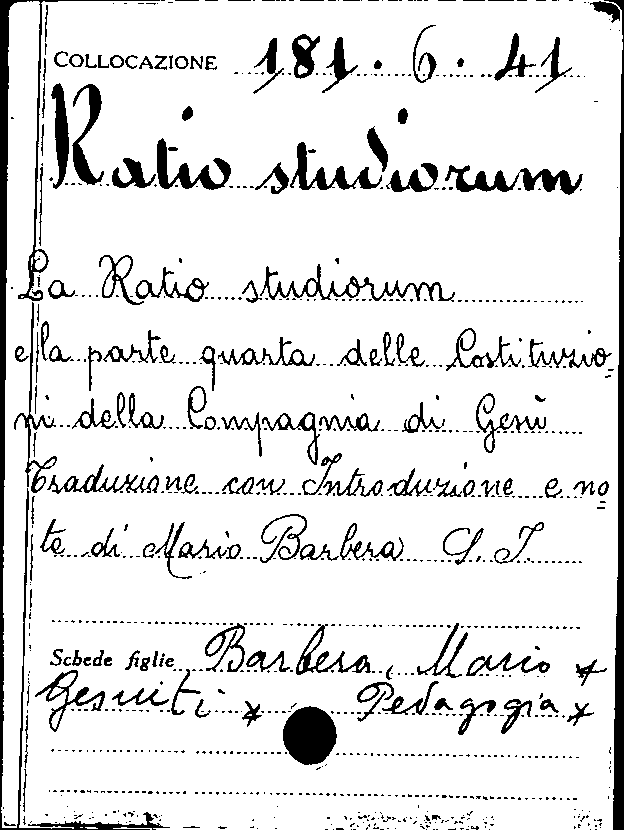 COLLOCAZIONE 181. 6. 41
Ratio studiorum
La Ratio studiorum
e la parte quarta delle Costituzio=
ni della Compagnia di Gesù
Traduzione con Introduzione e no=
te di Mario Barbera S. I.
Schede figlie Barbera, Mario *
Gesuiti * Pedagogia *